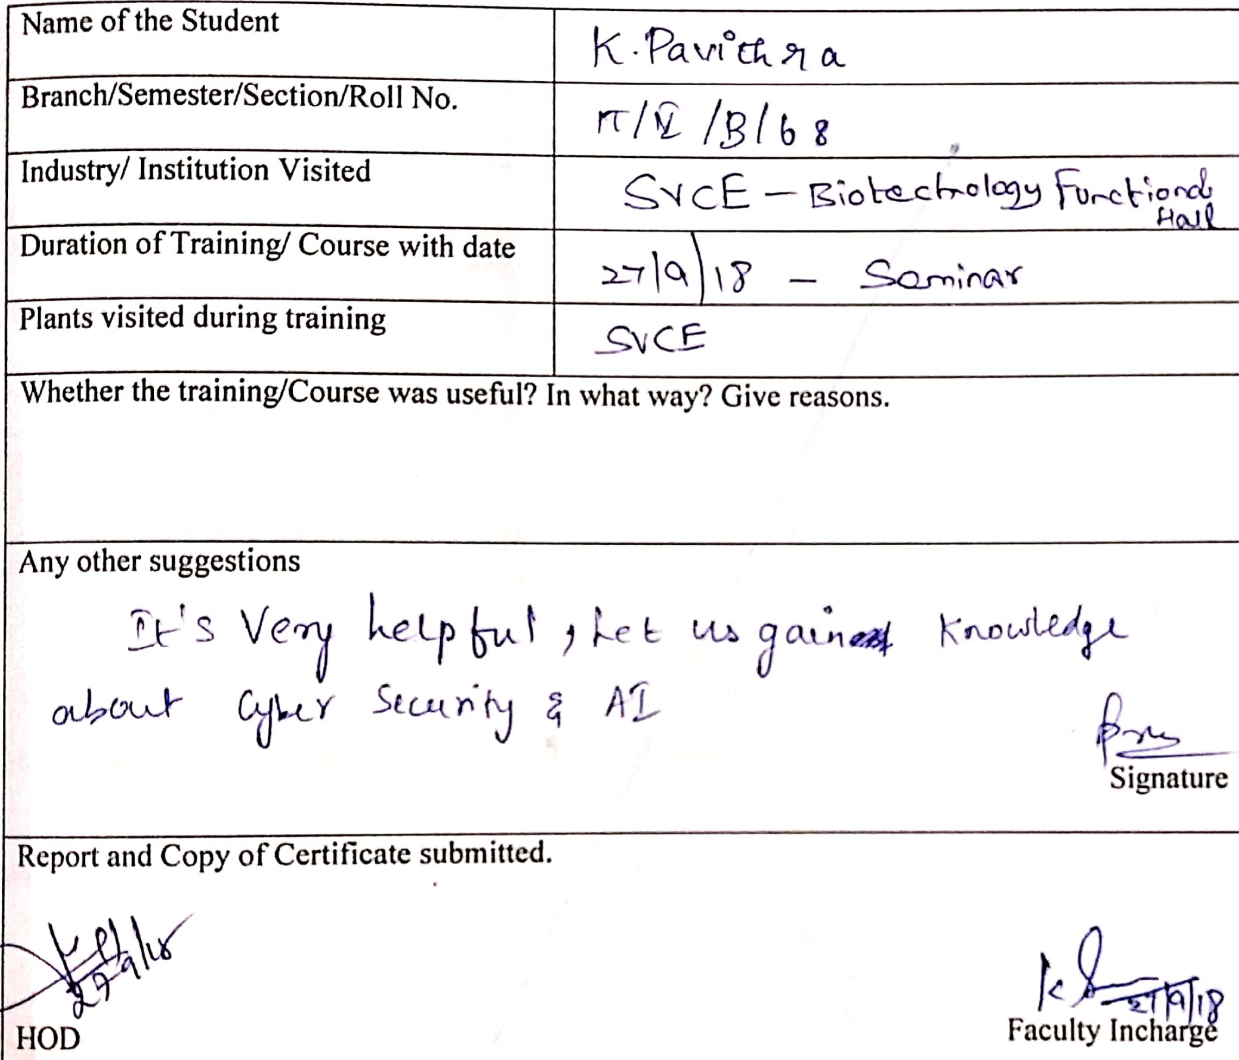 Name of the Student
K. Pavithra
Branch/Semester/Section/Roll No.
IT/V/B/68
Industry/ Institution Visited
SVCE – Biotechnology Functional
Hall
Duration of Training/ Course with date
27/9/18 – Seminar
Plants visited during training
SVCE
Whether the training/Course was useful? In what way? Give reasons.
Any other suggestions
It's Very helpful, Let us gain Knowledge
about Cyber Security & AI
Signature
Report and Copy of Certificate submitted.
27/9/18
27/9/18
HOD
Faculty Incharge